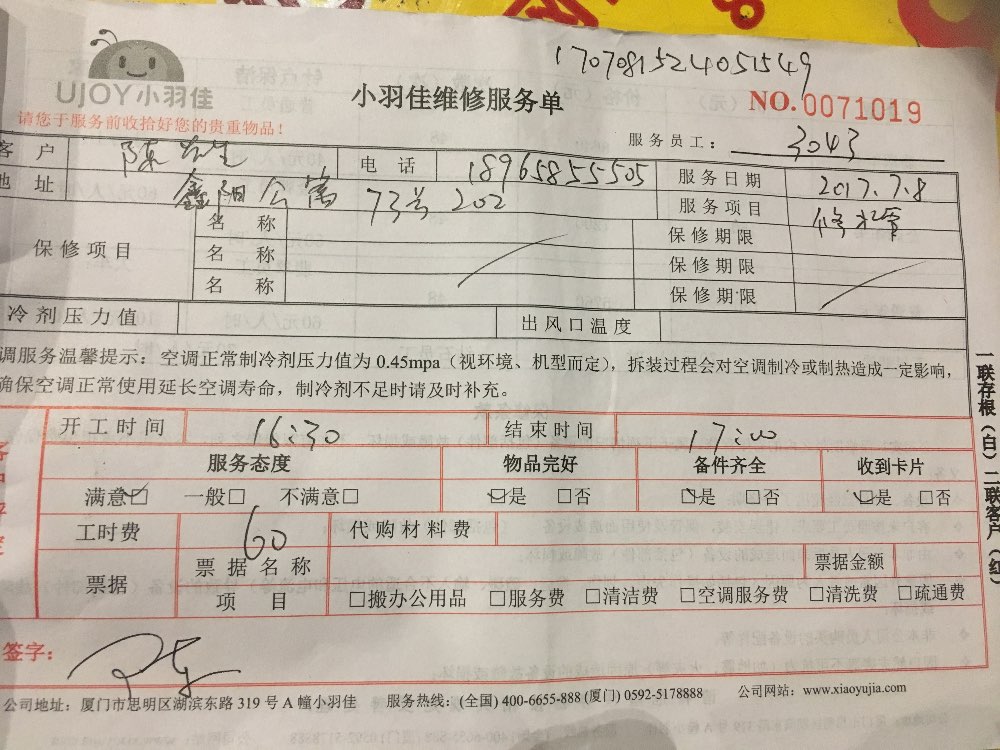 1707081524051549
UJOY小羽佳
小羽佳维修服务单
NO.0071019
请您于服务前收拾好您的贵重物品！
服务员工： 3043
客 户 陈先生 电 话 18965855505 服务日期 2017.7.8
地 址 鑫阳公寓 73号 202 服务项目 修水电
保修项目 名 称 保修期限
名 称 保修期限
名 称 保修期限
冷剂压力值 出风口温度
调服务温馨提示：空调正常制冷剂压力值为 0.45mpa（视环境、机型而定），拆装过程会对空调制冷或制热造成一定影响，
确保空调正常使用延长空调寿命，制冷剂不足时请及时补充。
开工时间 16:30 结束时间 17:00
服务态度 物品完好 备件齐全 收到卡片
满意☑ 一般□ 不满意□ ☑是 □否 ☑是 □否 ☑是 □否
工时费 60 代购材料费
票据 票据名称 票据金额
项 目 □搬办公用品 □服务费 □清洁费 □空调服务费 □清洗费 □疏通费
签字：
公司地址：厦门市思明区湖滨东路 319 号 A 幢小羽佳 服务热线：(全国) 400-6655-888 (厦门) 0592-5178888 公司网站：www.xiaoyujia.com
一联存根（白）二联客户（红）